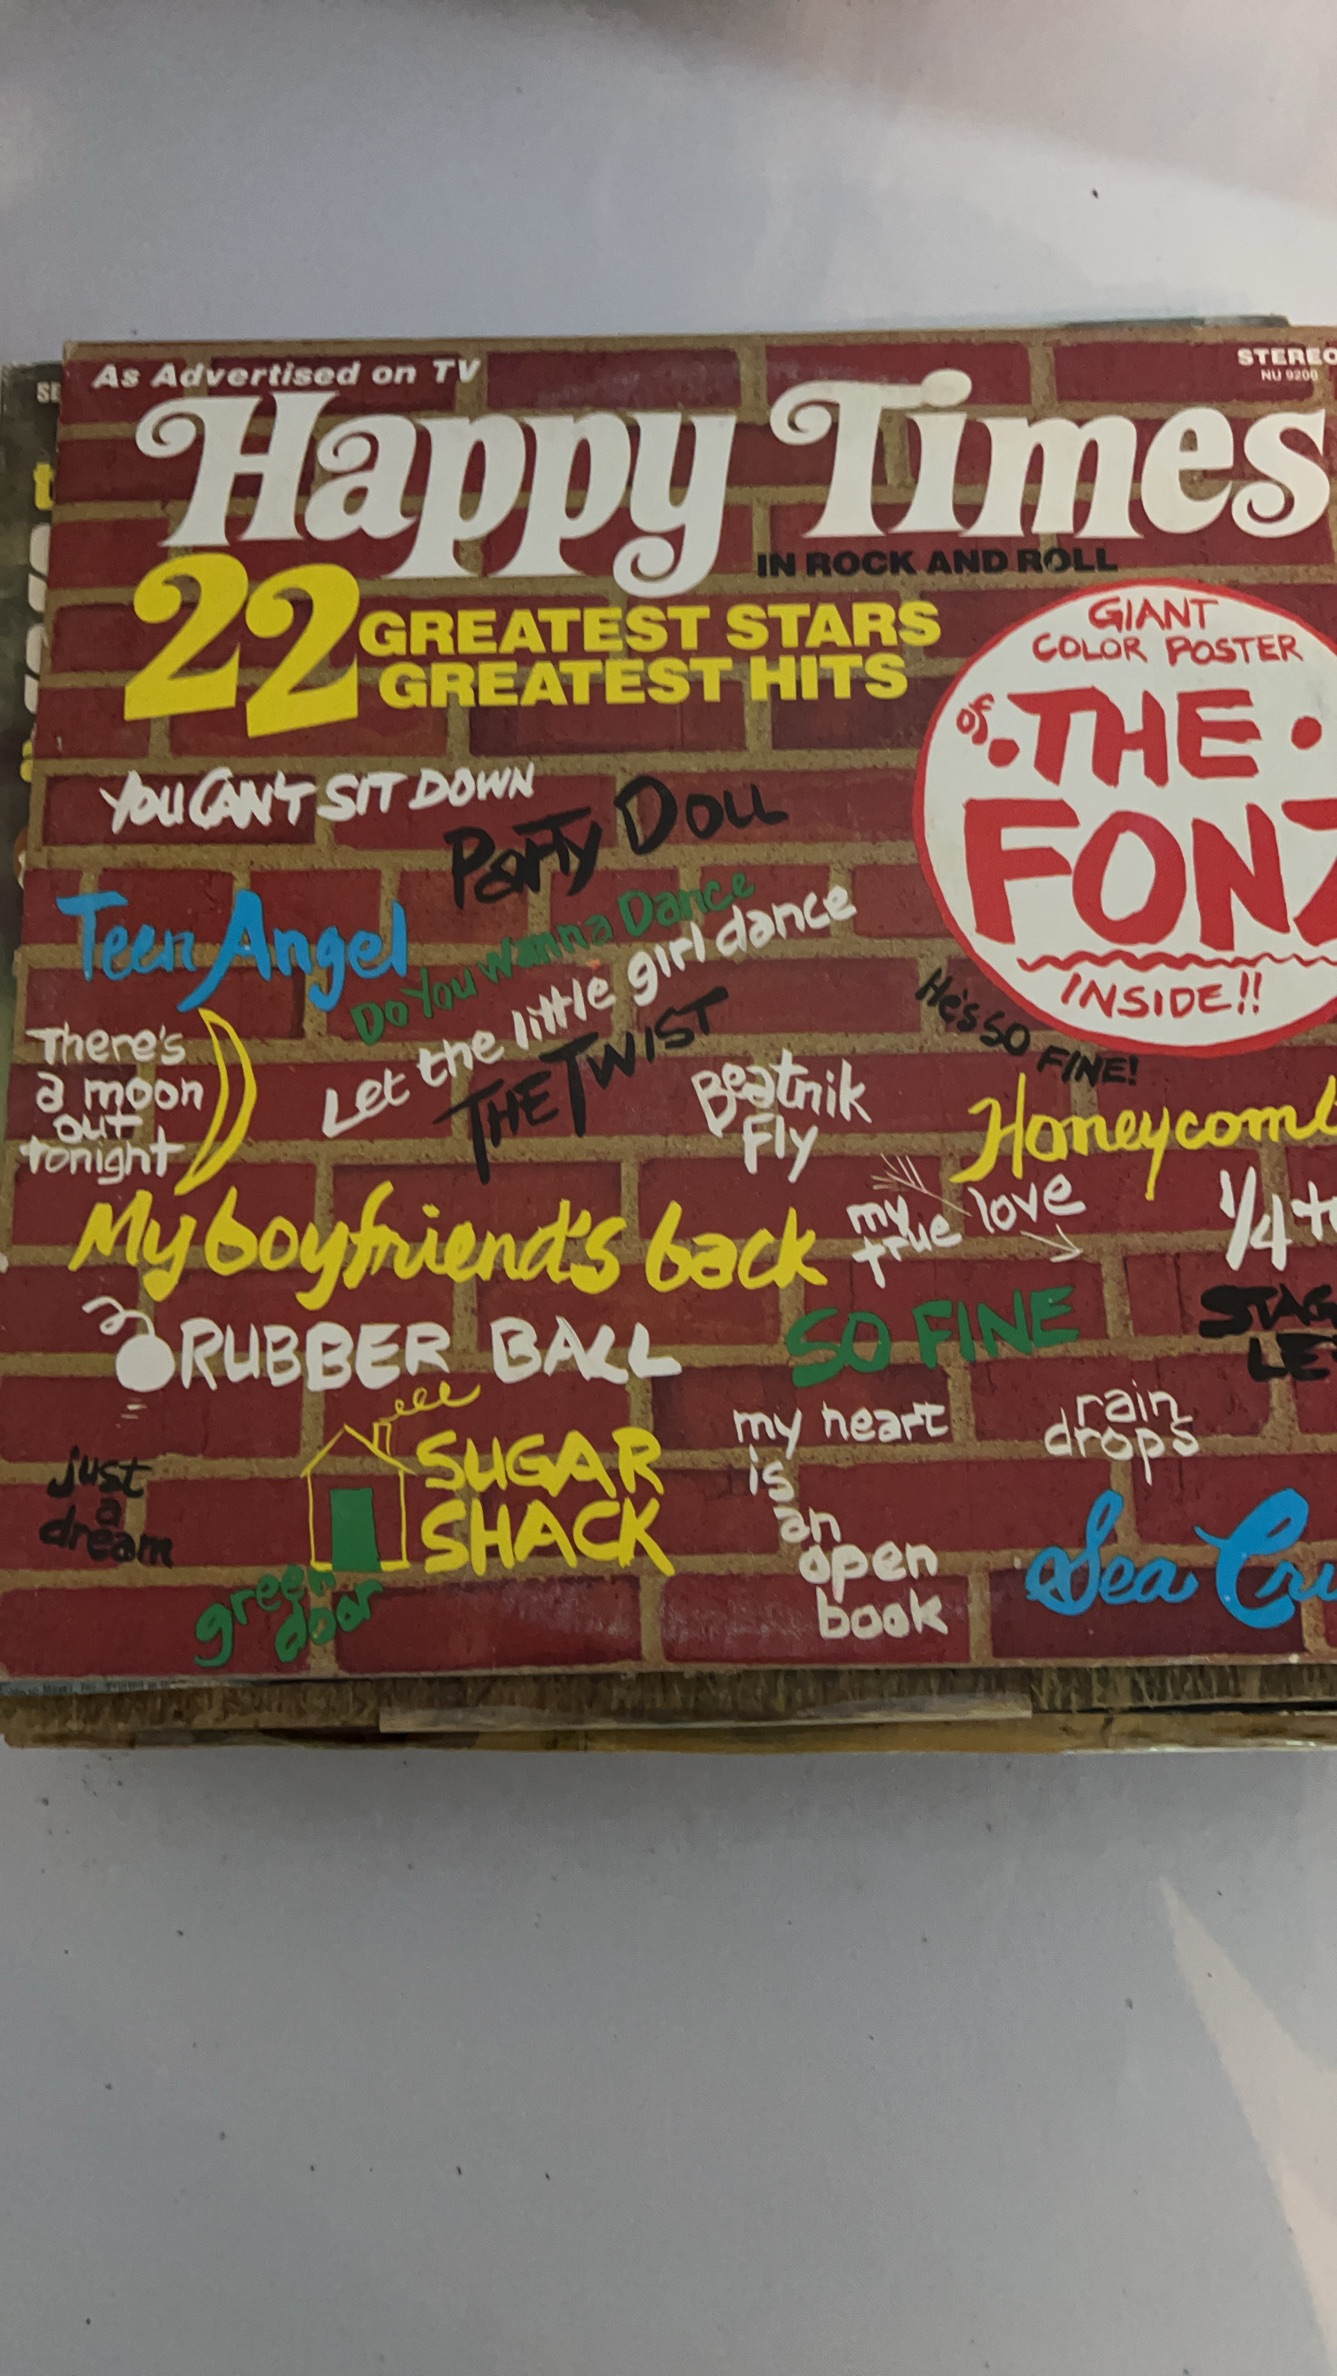 As Advertised on TV
STEREO
NU 9200
Happy Times
IN ROCK AND ROLL
22 GREATEST STARS
GREATEST HITS
GIANT
COLOR POSTER
of • THE •
FONZ
INSIDE!!
YOU CAN'T SIT DOWN
Party Doll
Teen Angel
Do You Wanna Dance
Let the little girl dance
THE TWIST
He's so FINE!
There's
a moon
out
tonight
Beatnik
Fly
Honeycomb
My boyfriend's back
my
true love
1/4 t
STAG
LE
RUBBER BALL
SO FINE
just
a
dream
SUGAR
SHACK
green
door
my heart
is
an
open
book
rain
drops
Sea Cru